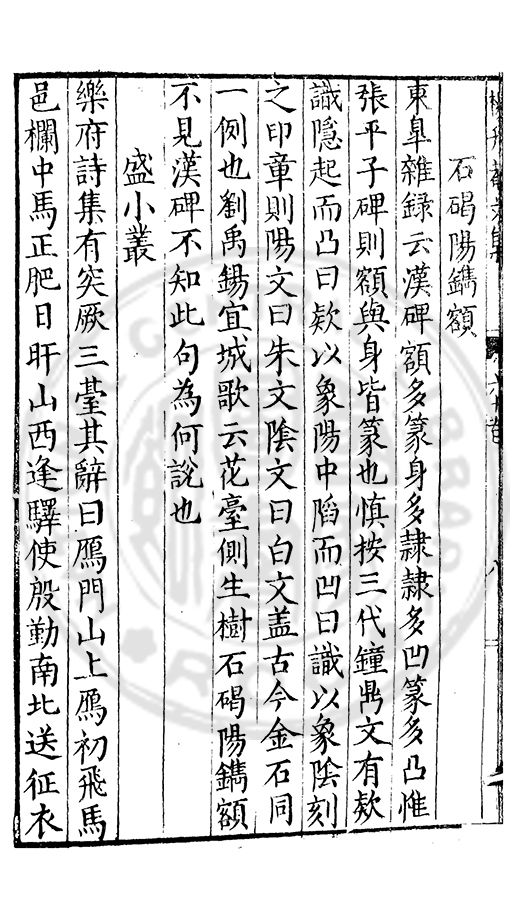 石碣陽鐫額
東皐雜録云漢碑額多篆身多隷隷多凹篆多凸惟
張平子碑則額與身皆篆也慎按三代鐘鼎文有欵
識隠起而凸曰欵以象陽中䧟而凹曰識以象陰刻
之印章則陽文曰朱文陰文曰白文盖古今金石同
一例也劉禹錫宜城歌云花臺側生樹石碣陽鐫額
不見漢碑不知此句為何說也
盛小叢
樂府詩集有突厥三臺其辭曰鴈門山上鴈初飛馬
邑欄中馬正肥日旰山西逢驛使殷勤南北送征衣